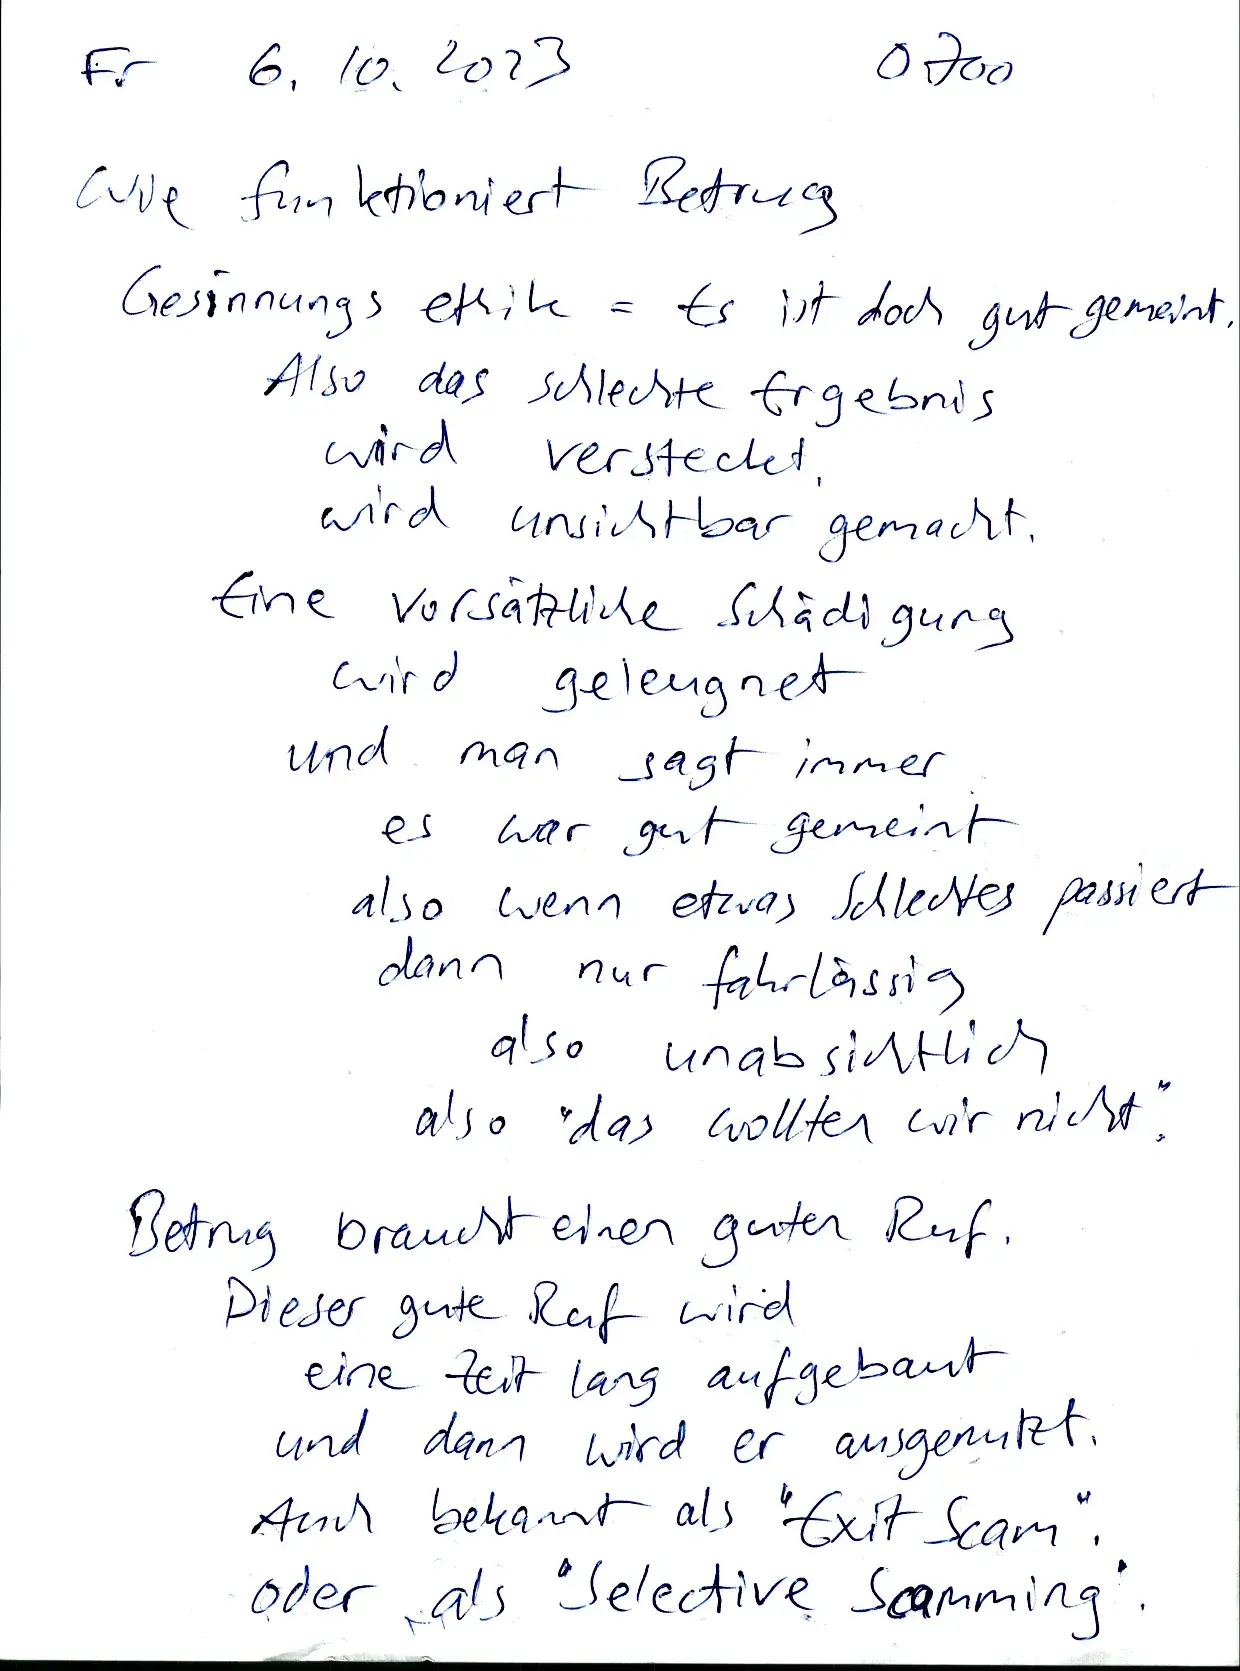 Fr 6. 10. 2023 0700
Wie funktioniert Betrug
Gesinnungsethik = Es ist doch gut gemeint.
Also das schlechte Ergebnis
wird versteckt,
wird unsichtbar gemacht.
Eine vorsätzliche Schädigung
wird geleugnet
und man sagt immer
es war gut gemeint
also wenn etwas Schlechtes passiert
dann nur fahrlässig
also unabsichtlich
also "das wollten wir nicht".
Betrug braucht einen guten Ruf.
Dieser gute Ruf wird
eine Zeit lang aufgebaut
und dann wird er ausgenutzt.
Auch bekannt als "Exit Scam".
oder als "Selective Scamming".